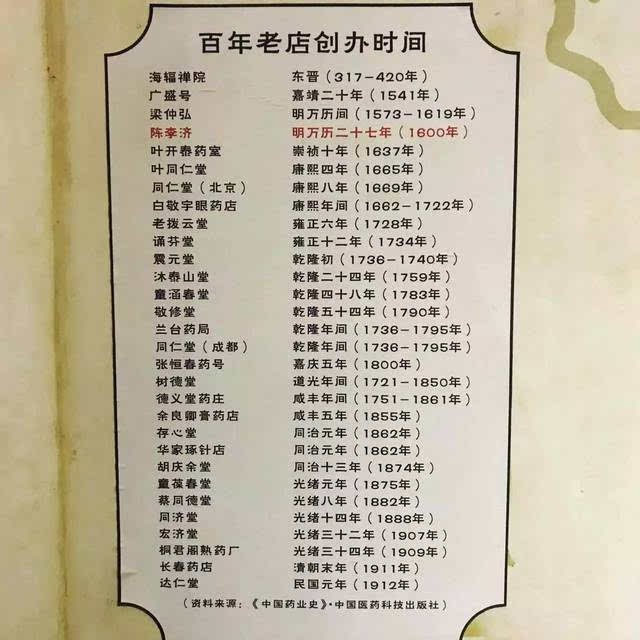 百年老店创办时间
海辐禅院 东晋(317-420年)
广盛号 嘉靖二十年(1541年)
梁仲弘 明万历间(1573-1619年)
陈李济 明万历二十七年(1600年)
叶开泰药室 崇祯十年(1637年)
叶同仁堂 康熙四年(1665年)
同仁堂(北京) 康熙八年(1669年)
白敬宇眼药店 康熙年间(1662-1722年)
老拨云堂 雍正六年(1728年)
诵芬堂 雍正十二年(1734年)
震元堂 乾隆初(1736-1740年)
沐泰山堂 乾隆二十四年(1759年)
童涵春堂 乾隆四十八年(1783年)
敬修堂 乾隆五十四年(1790年)
兰台药局 乾隆年间(1736-1795年)
同仁堂(成都) 乾隆年间(1736-1795年)
张恒春药号 嘉庆五年(1800年)
树德堂 道光年间(1721-1850年)
德义堂药庄 咸丰年间(1751-1861年)
余良卿膏药店 咸丰五年(1855年)
存心堂 同治元年(1862年)
华家琢针店 同治元年(1862年)
胡庆余堂 同治十三年(1874年)
童葆春堂 光绪元年(1875年)
蔡同德堂 光绪八年(1882年)
同济堂 光绪十四年(1888年)
宏济堂 光绪三十二年(1907年)
桐君阁熟药厂 光绪三十四年(1909年)
长春药店 清朝末年(1911年)
达仁堂 民国元年(1912年)
(资料来源:《中国药业史》·中国医药科技出版社)